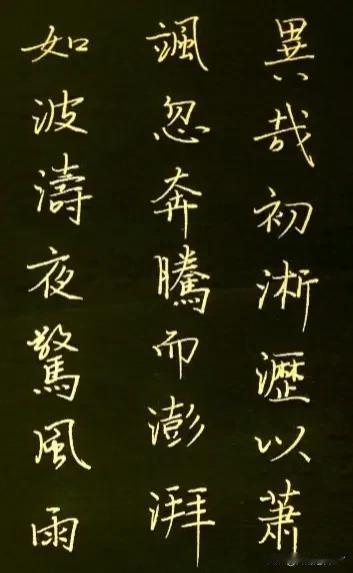 異哉初淅瀝以蕭
颯忽奔騰而澎湃
如波濤夜驚風雨